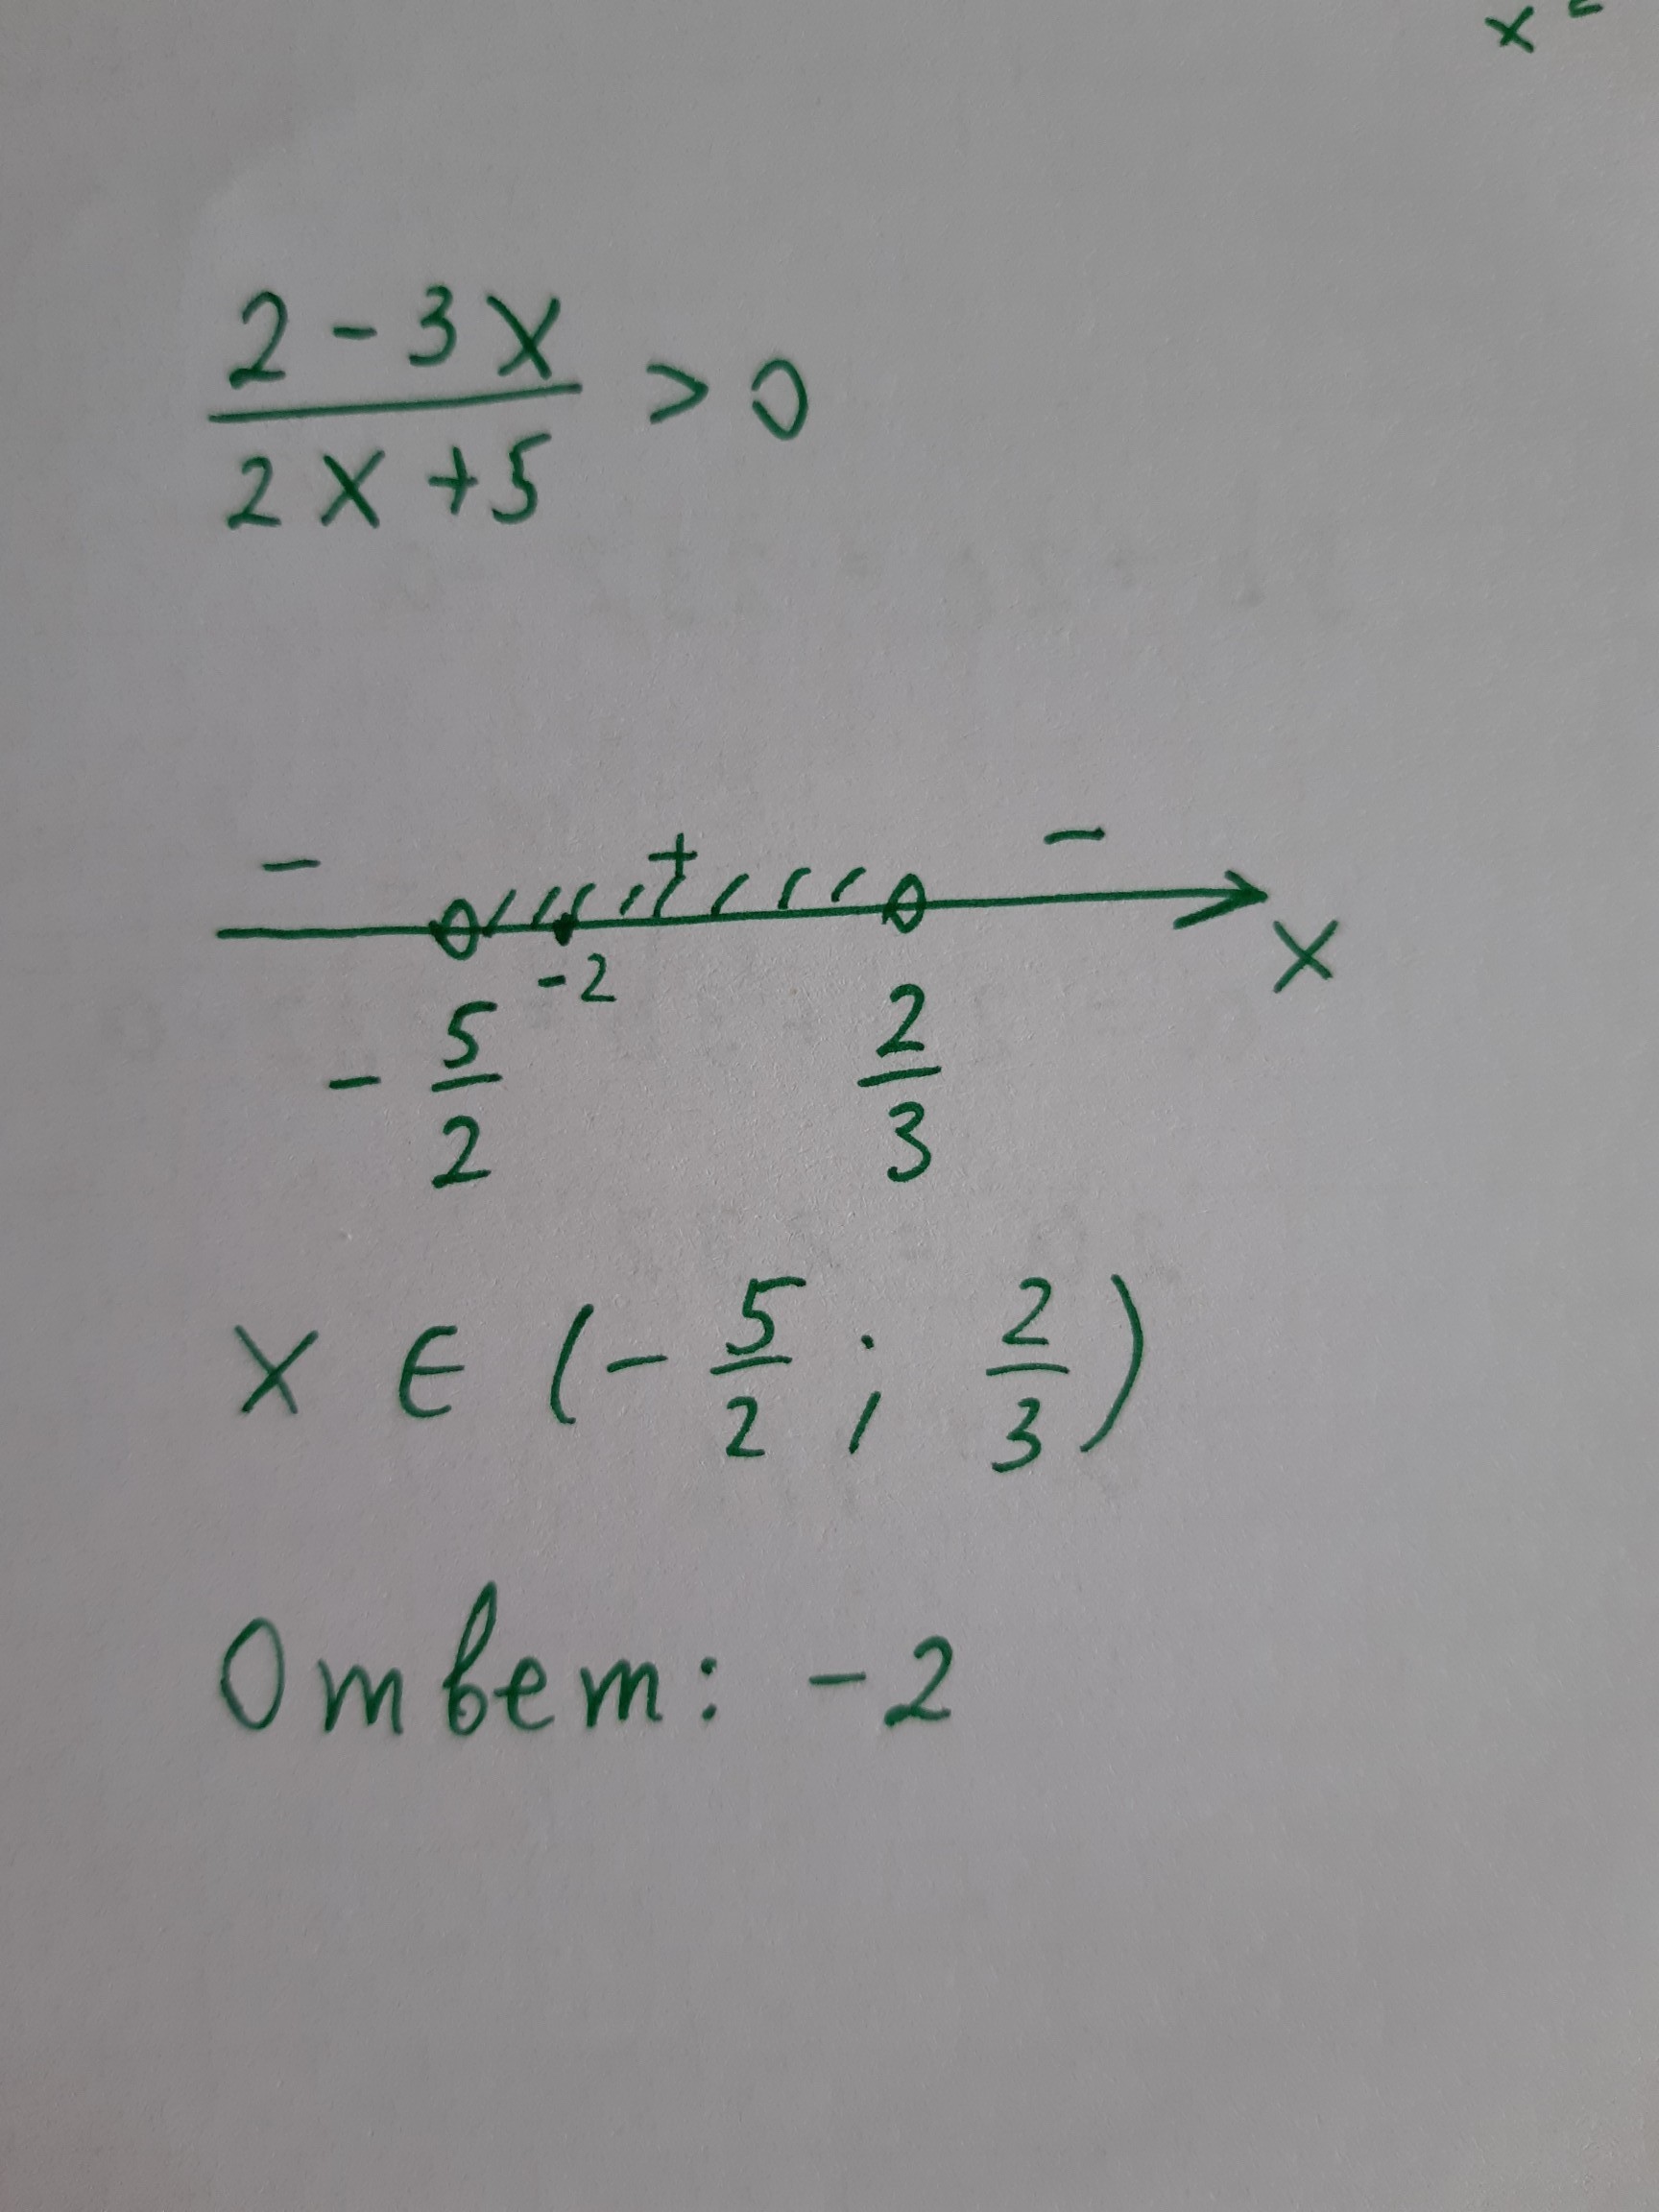 x
2 - 3x
2x + 5
> 0
- + -
-2
x
- 5/2
2/3
x ∈ (- 5/2 ; 2/3)
Ответ: -2